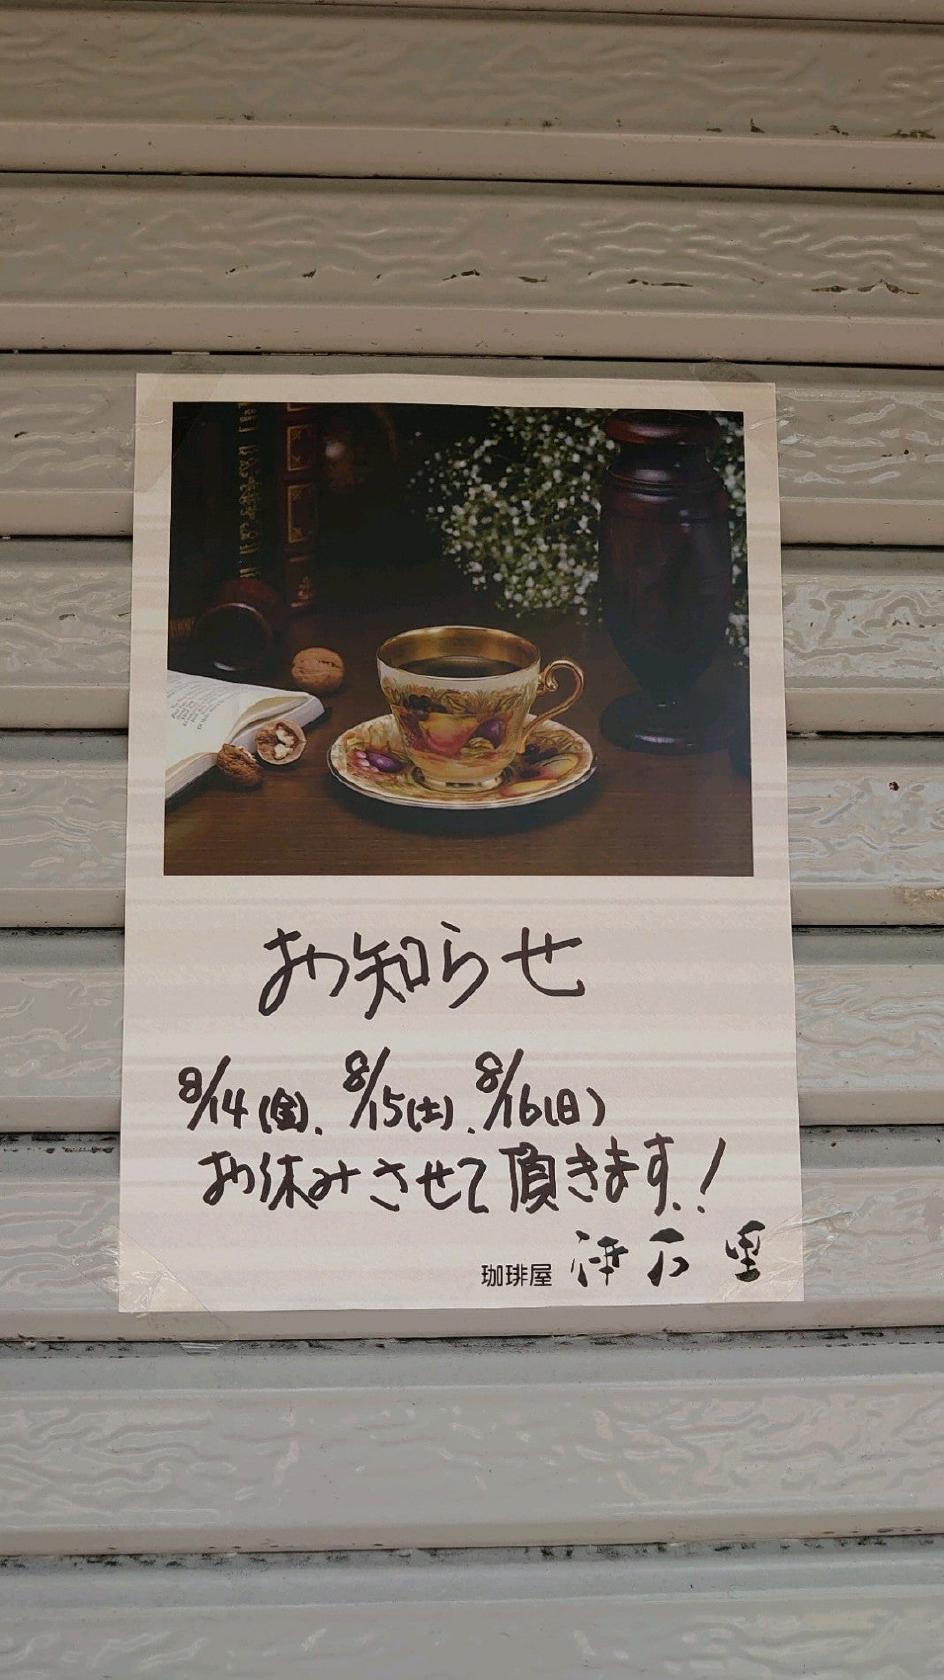 お知らせ
8/14(金)、8/15(土)、8/16(日)
お休みさせて頂きます!
珈琲屋